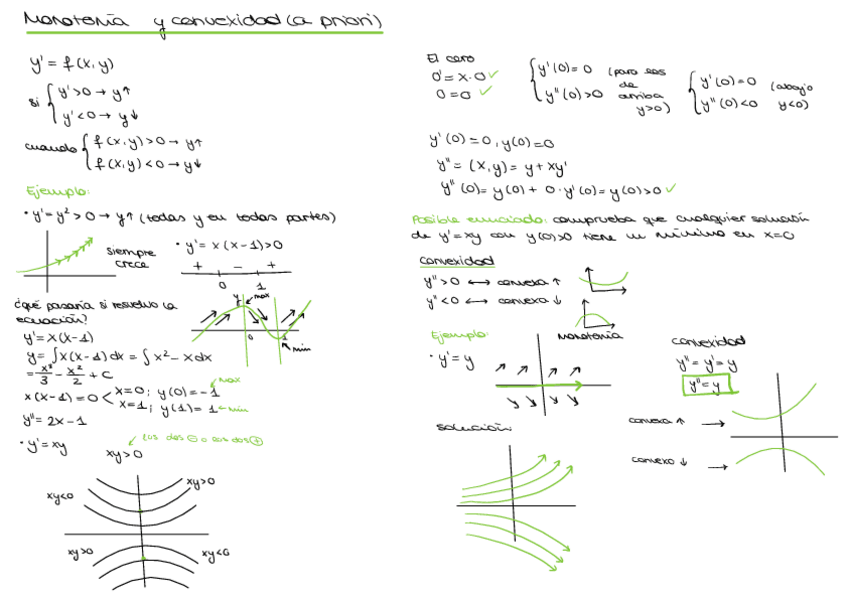 Monotonía y convexidad (a priori)
y' = f(x,y)
si { y' > 0 → y↑
y' < 0 → y↓
cuando { f(x,y) > 0 → y↑
f(x,y) < 0 → y↓
Ejemplo:
• y' = y² > 0 → y↑ (todas y en todas partes)
siempre
crece
• y' = x(x-1) > 0
+ - +
0 1
¿qué pasaría si resuelvo la
ecuación?
y' = x(x-1)
y = ∫x(x-1) dx = ∫x² - x dx
= x³/3 - x²/2 + C
x(x-1) = 0 < x=0; y(0) = -1 max
x=1; y(1) = 1 ← min
y'' = 2x-1
y max
0 1
min
• y' = xy
Los dos ⊖ o los dos ⊕
xy>0
xy<0 xy>0
xy>0 xy<0
El cero
0' = x·0 ✓
0 = 0 ✓
{ y'(0) = 0 (para las
de
y''(0) > 0 arriba
y>0)
{ y'(0) = 0 (abajo
y''(0) < 0 y<0)
y'(0) = 0, y(0) = 0
y'' = (x,y) = y + xy'
y''(0) = y(0) + 0·y'(0) = y(0) > 0 ✓
Posible enunciado: comprueba que cualquier solución
de y' = xy con y(0)>0 tiene un mínimo en x=0
convexidad
y'' > 0 ↔ convexa ↑
y'' < 0 ↔ convexa ↓
Ejemplo: Monotonía
• y' = y
solución:
convexidad
y'' = y' = y
y'' = y
convexa ↑ →
convexo ↓ →